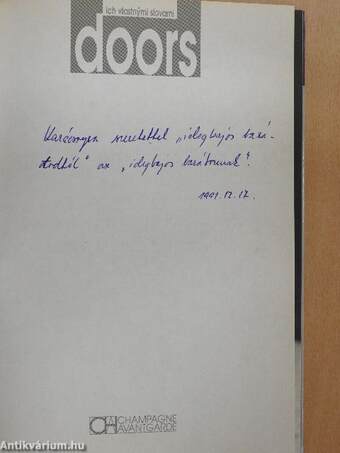 ich vlastnými slovami
doors
Karácsonyra szeretettel „idegbajos bará-
todtól” az „idegbajos barátomnak”.
1991. 12. 17.
CHAMPAGNE
AVANTGARDE
Antikvárium.hu